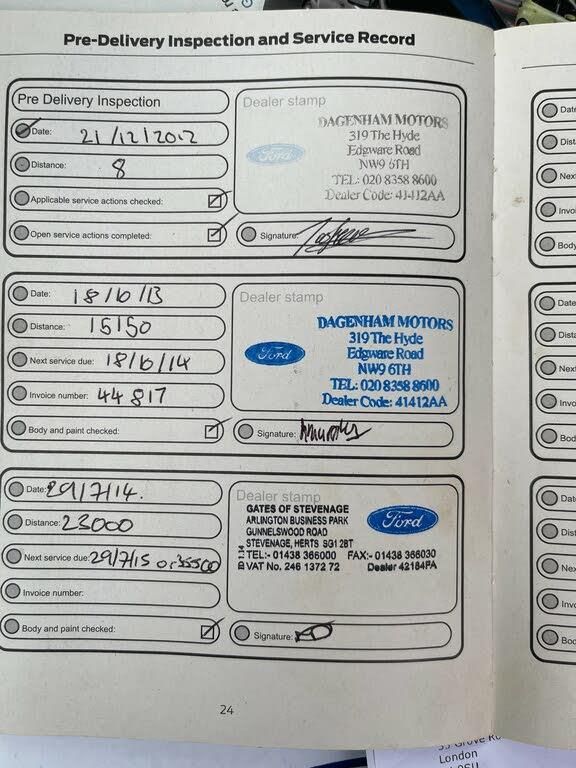 Pre-Delivery Inspection and Service Record
Pre Delivery Inspection
Date: 21/12/2012
Distance: 8
Applicable service actions checked:
Open service actions completed:
Dealer stamp
Ford
DAGENHAM MOTORS
319 The Hyde
Edgware Road
NW9 6TH
TEL: 020 8358 8600
Dealer Code: 41412AA
Signature:
Date: 18/6/13
Distance: 15150
Next service due: 18/6/14
Invoice number: 44817
Body and paint checked:
Dealer stamp
Ford
DAGENHAM MOTORS
319 The Hyde
Edgware Road
NW9 6TH
TEL: 020 8358 8600
Dealer Code: 41412AA
Signature:
Date: 29/7/14.
Distance: 23000
Next service due: 29/7/15 or 35500
Invoice number:
Body and paint checked:
Dealer stamp
GATES OF STEVENAGE
ARLINGTON BUSINESS PARK
GUNNELSWOOD ROAD
STEVENAGE, HERTS SG1 2BT
TEL:- 01438 366000 FAX:- 01438 366030
VAT No. 246 1372 72 Dealer 42184FA
Ford
Signature:
24
Date
Dist
Next
Invo
Body
Date
Dista
Next
Invo
Bod
Dat
Dist
Nex
Inv
Boo
London